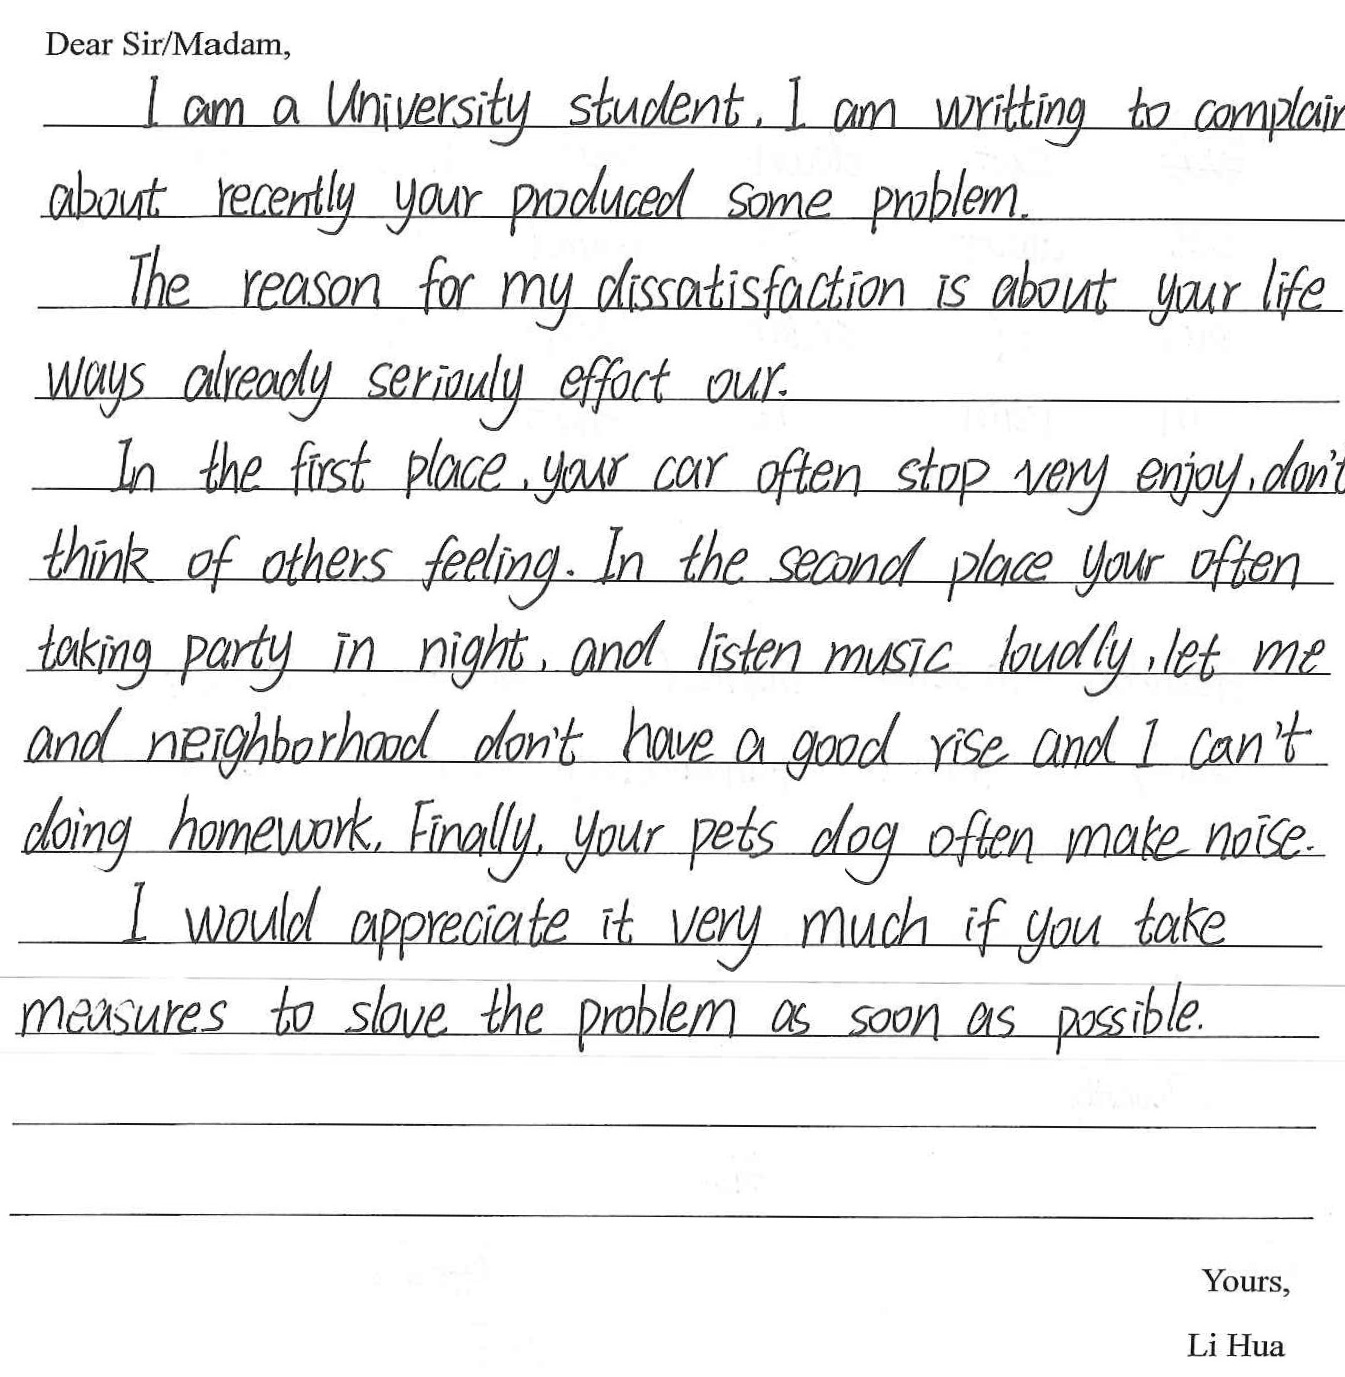 Dear Sir/Madam,
I am a University student. I am writting to complain
about recently your produced some problem.
The reason for my dissatisfaction is about your life
ways already seriouly effoct our.
In the first place, your car often stop very enjoy, don't
think of others feeling. In the second place your often
taking party in night, and listen music loudly, let me
and neighborhood don't have a good rise and I can't
doing homework. Finally, your pets dog often make noise.
I would appreciate it very much if you take
measures to slove the problem as soon as possible.
Yours,
Li Hua